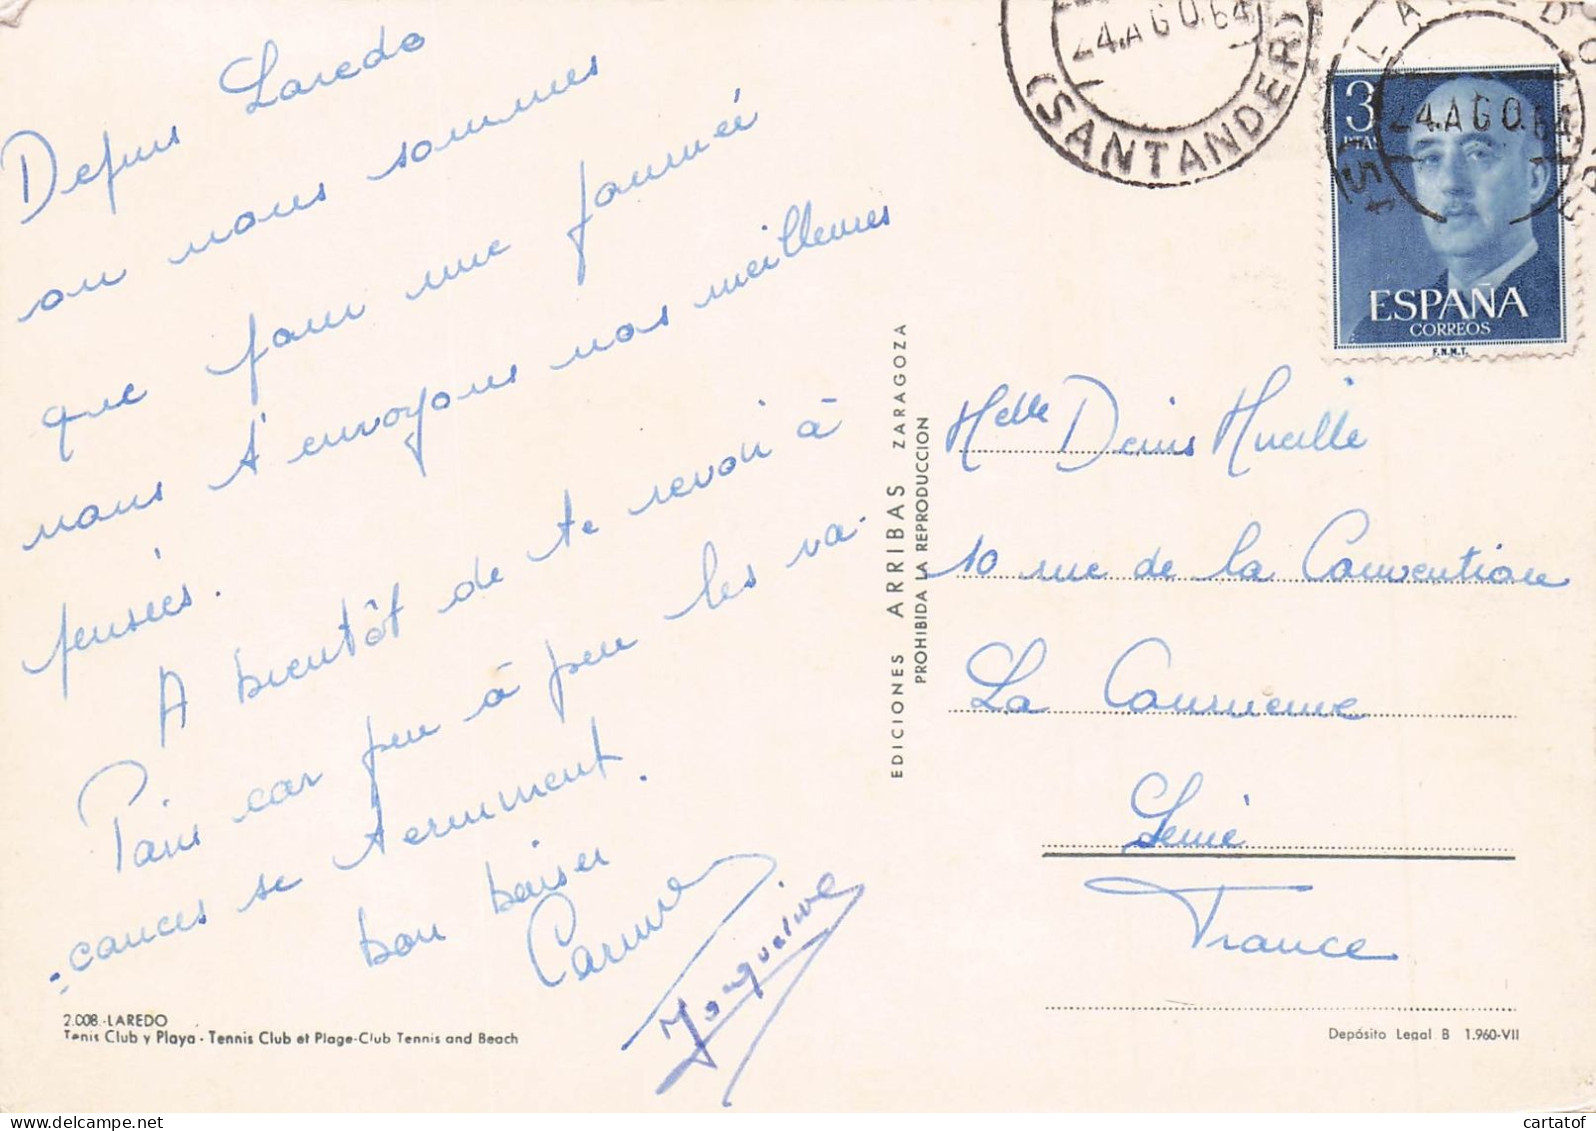 Depuis Laredo
ou nous sommes
que pour une journée
nous t'envoyons nos meilleures
pensées.
A bientôt de te revoir à
Paris car peu à peu les va-
-cances se terminent.
bon baiser
Carmen
Jacqueline
2.008.-LAREDO
Tenis Club y Playa - Tennis Club et Plage-Club Tennis and Beach
EDICIONES ARRIBAS ZARAGOZA
PROHIBIDA LA REPRODUCCION
24.AGO.64
(SANTANDER)
LAREDO
24.AGO.64
3
PTAS
ESPAÑA
CORREOS
F.N.M.T.
Melle Denis
10 rue de la Convention
La Courneuve
Seine
France
Depósito Legal B 1.960-VII
cartatof